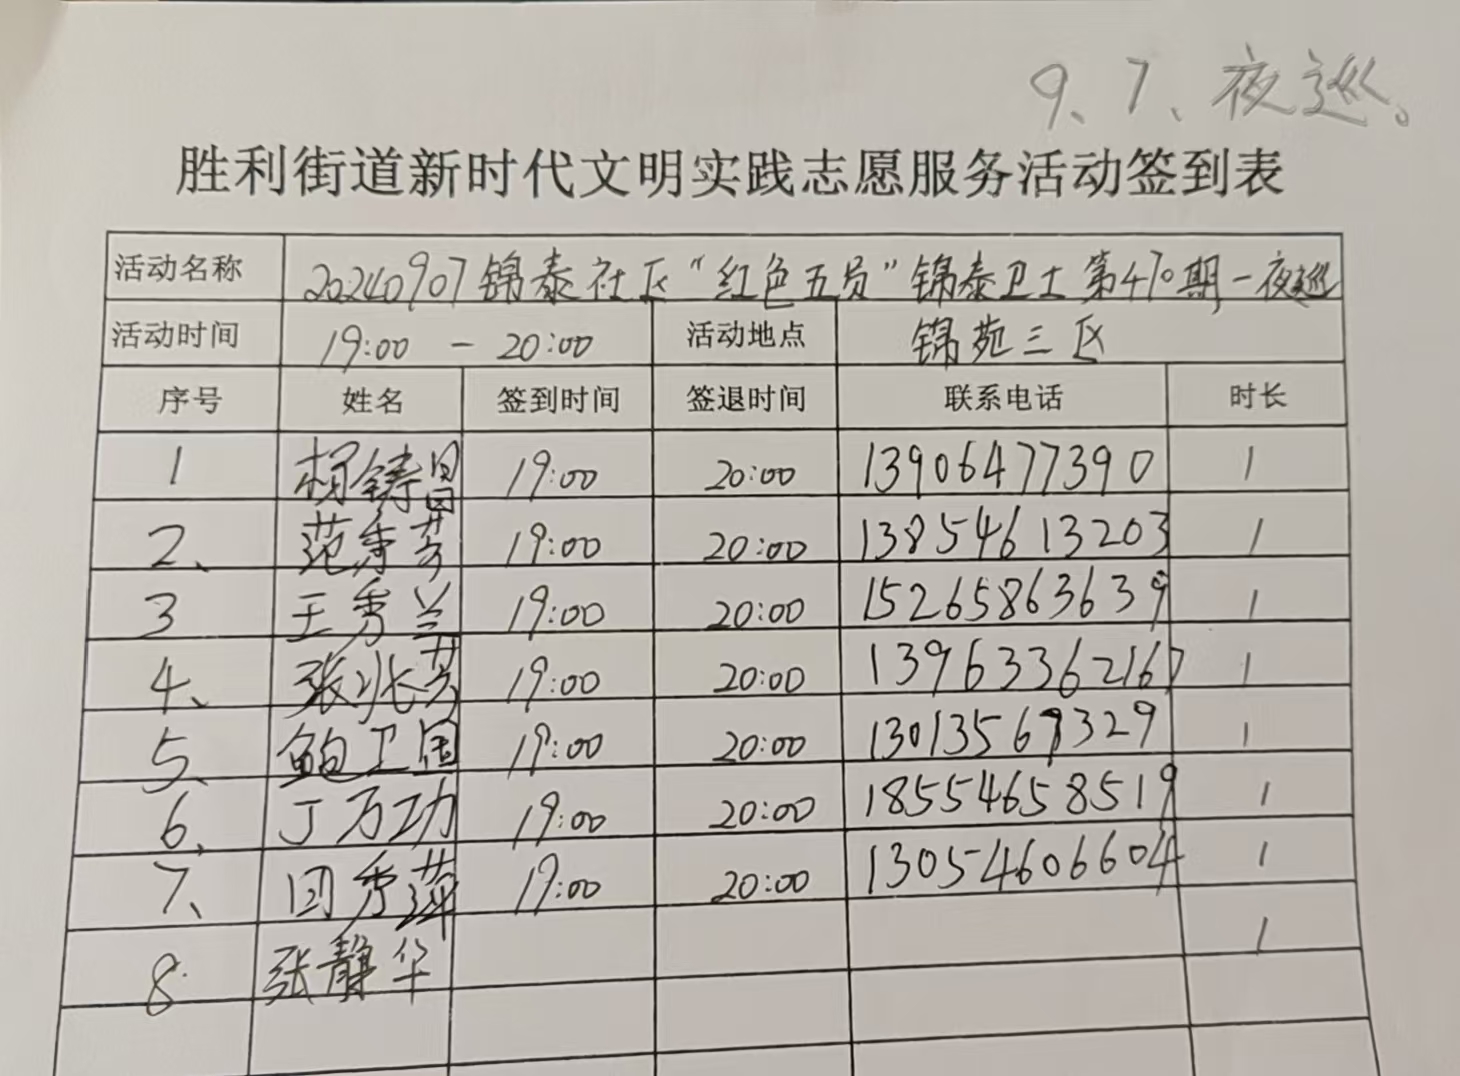 9、7、夜巡。
胜利街道新时代文明实践志愿服务活动签到表
活动名称 20240907锦泰社区“红色五员”锦泰卫士第470期-夜巡
活动时间 19:00 - 20:00 活动地点 锦苑三区
序号 姓名 签到时间 签退时间 联系电话 时长
1 杨铸昌 19:00 20:00 13906477390 1
2、 范秀芳 19:00 20:00 13854613203 1
3 王秀兰 19:00 20:00 15265863639 1
4、 张兆芸 19:00 20:00 13963362167 1
5、 鲍卫国 19:00 20:00 13013569329 1
6、 丁万功 19:00 20:00 18554658519 1
7、 田秀萍 19:00 20:00 13054606604 1
8. 张静华 1